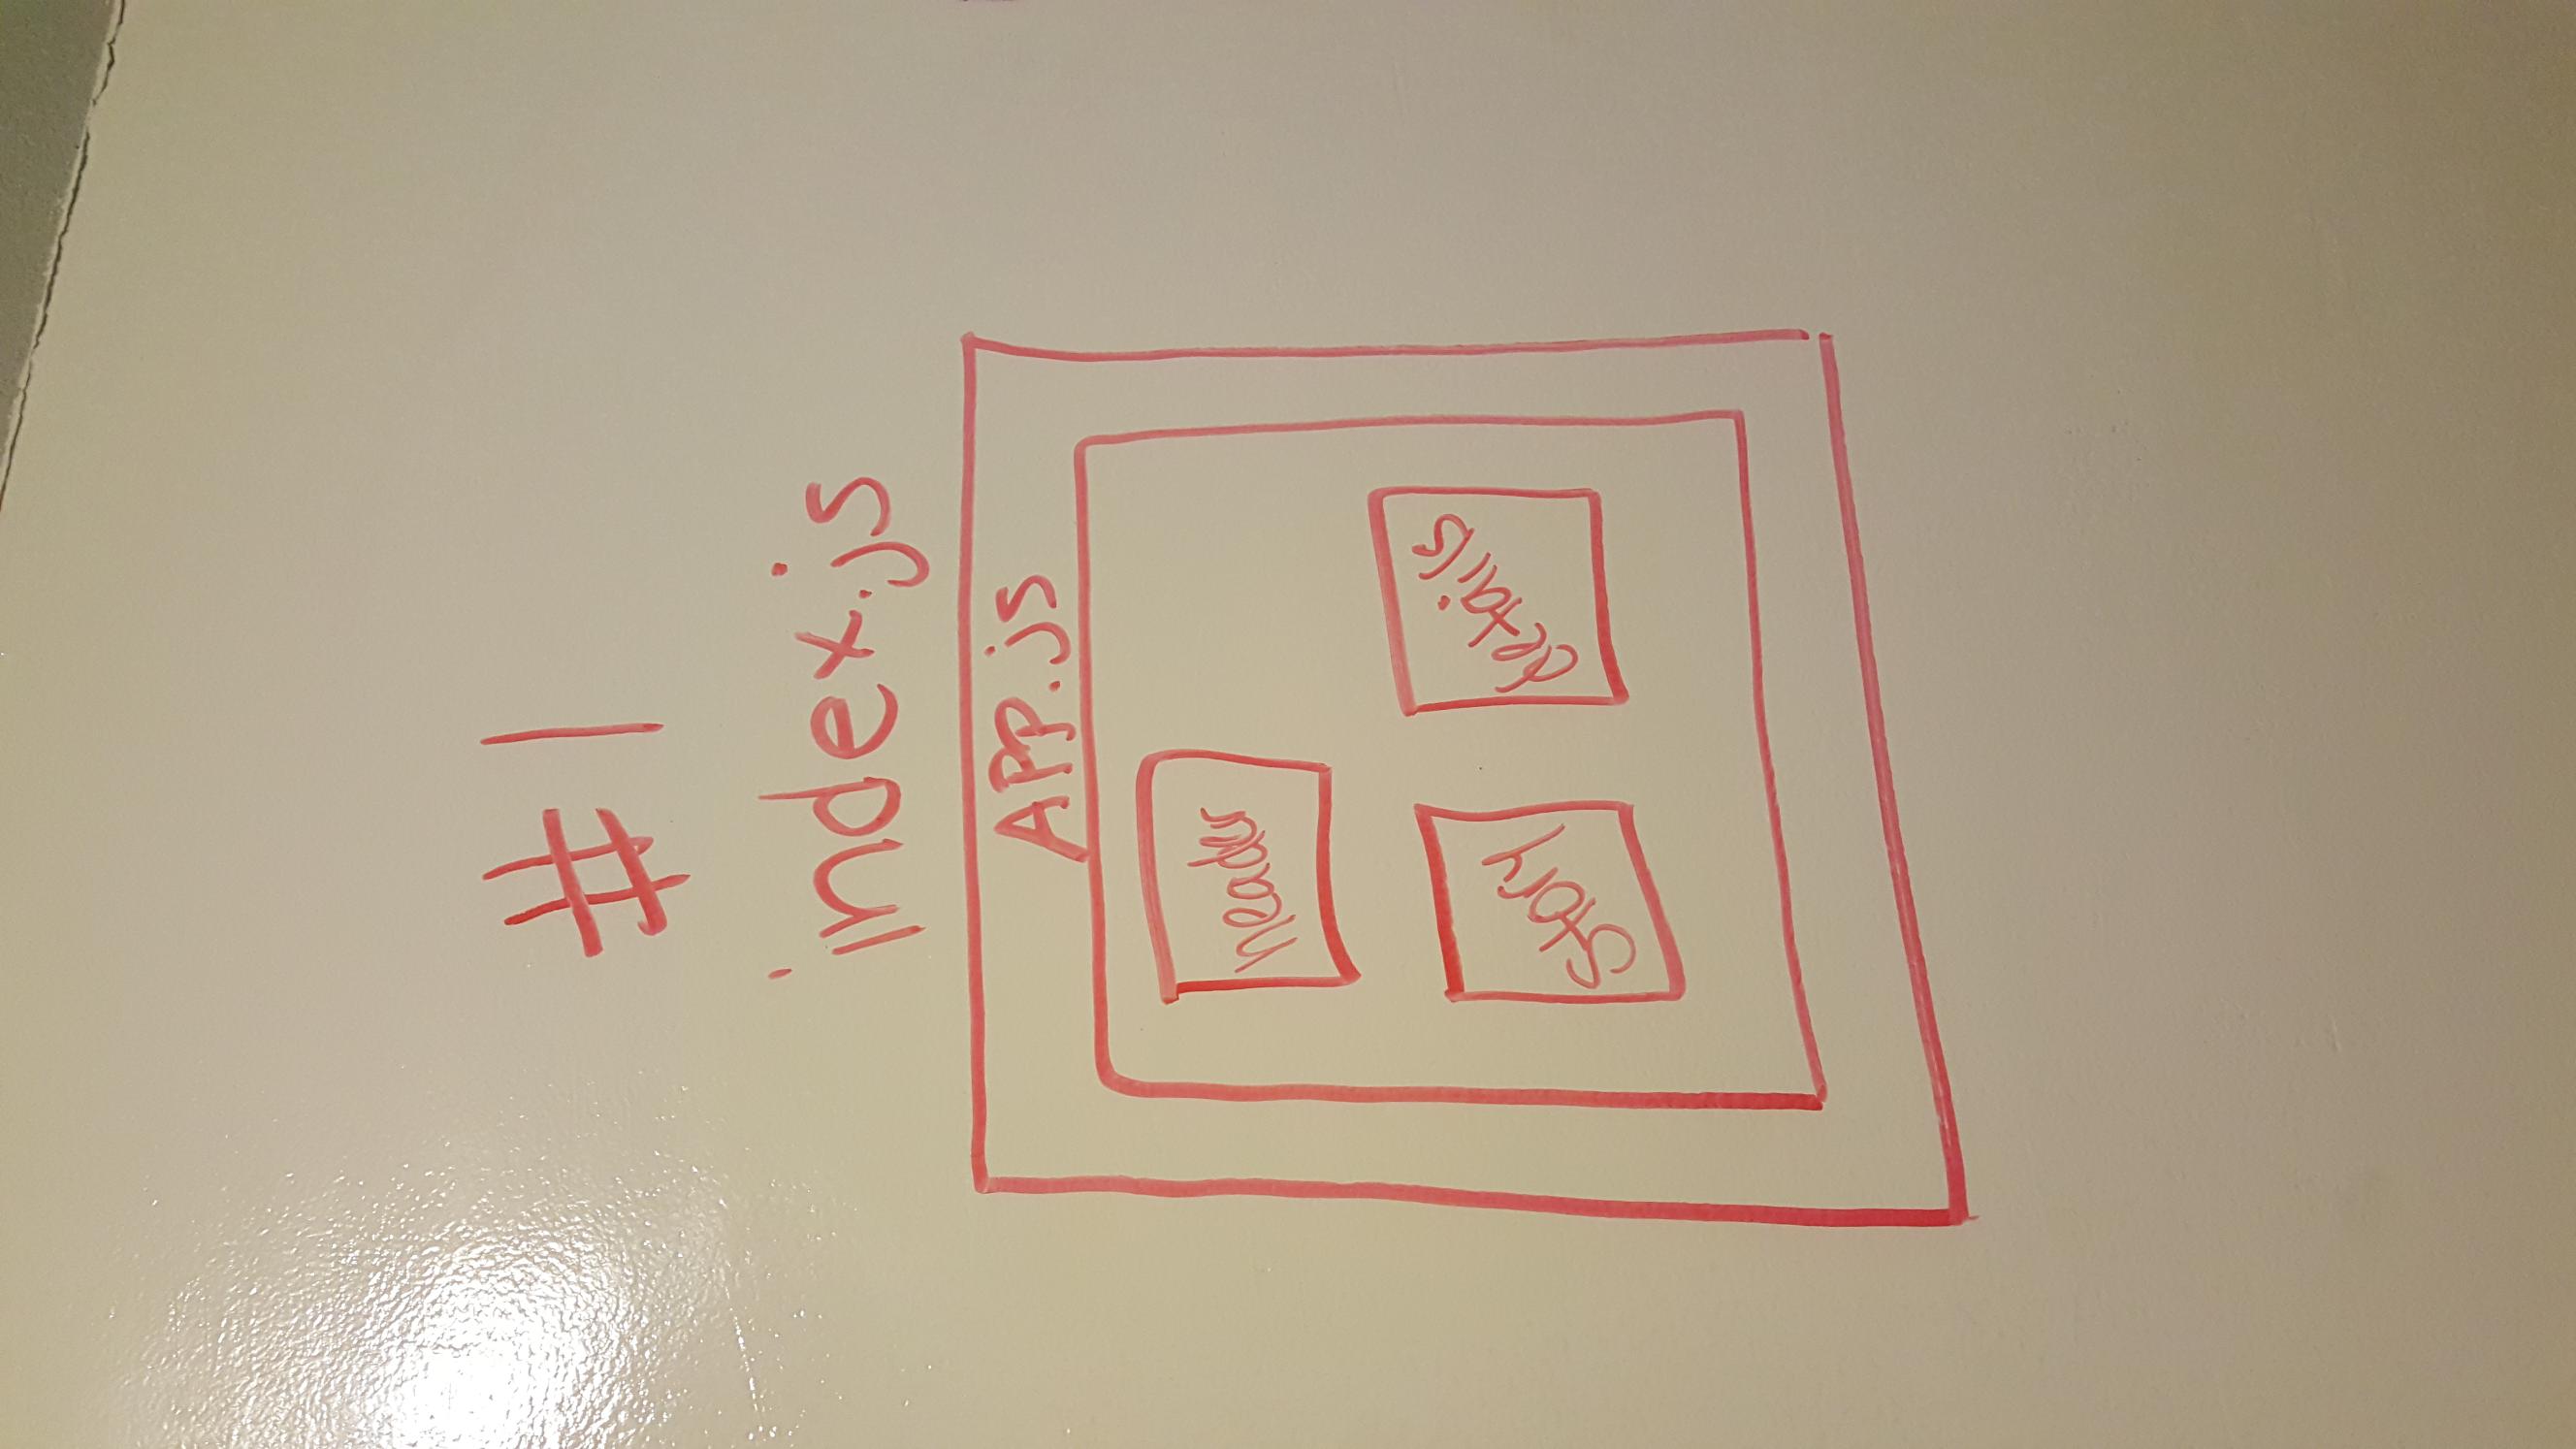 #1
index.js
APP.js
header
story
details